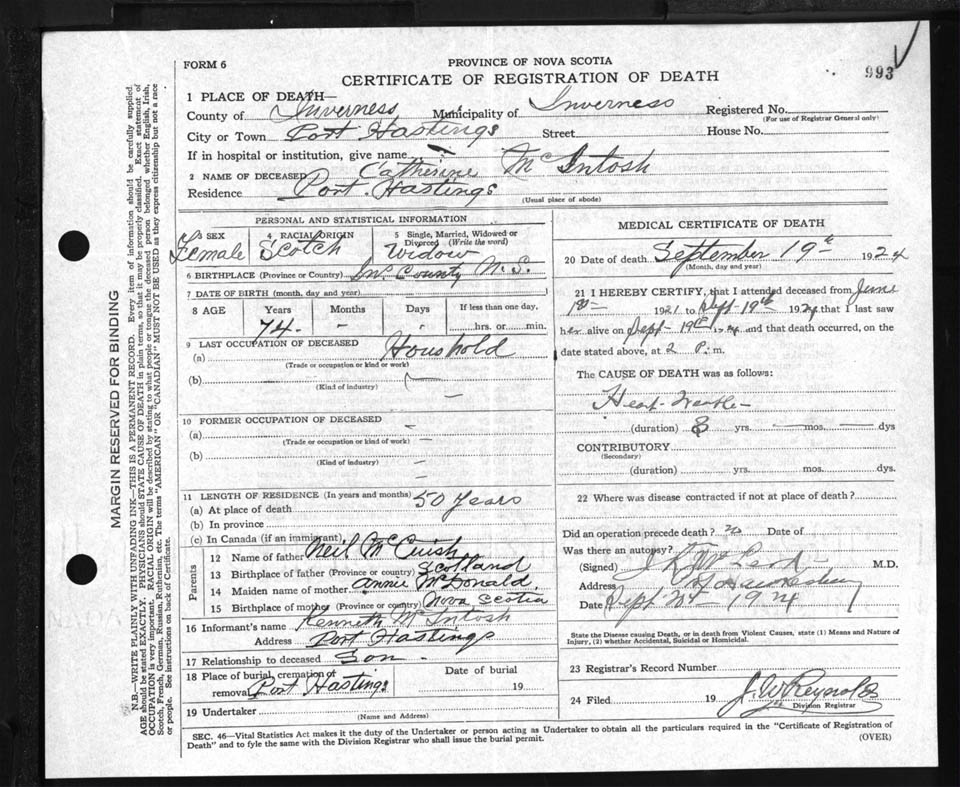 FORM 6
PROVINCE OF NOVA SCOTIA
CERTIFICATE OF REGISTRATION OF DEATH
993
1 PLACE OF DEATH—
County of Inverness Municipality of Inverness Registered No.
(For use of Registrar General only)
City or Town Port Hastings Street House No.
If in hospital or institution, give name
2 NAME OF DECEASED Catherine McIntosh
Residence Port Hastings
(Usual place of abode)
PERSONAL AND STATISTICAL INFORMATION
3 SEX Female
4 RACIAL ORIGIN Scotch
5 Single, Married, Widowed or Divorced (Write the word) Widow
6 BIRTHPLACE (Province or Country) Inv. County N. S.
7 DATE OF BIRTH (month, day and year)
8 AGE Years Months Days If less than one day.
74 – – hrs. or min.
9 LAST OCCUPATION OF DECEASED
(a) Houshold
(Trade or occupation or kind or work)
(b) —
(Kind of industry)
10 FORMER OCCUPATION OF DECEASED
(a) –
(Trade or occupation or kind of work)
(b) –
(Kind of industry)
11 LENGTH OF RESIDENCE (In years and months)
(a) At place of death 50 years
(b) In province
(c) In Canada (if an immigrant)
Parents
12 Name of father Neil McCuish
13 Birthplace of father (Province or country) Scotland
14 Maiden name of mother Annie McDonald.
15 Birthplace of mother (Province or country) Nova Scotia
16 Informant's name Kenneth McIntosh
Address Port Hastings
17 Relationship to deceased Son
18 Place of burial, cremation or removal Port Hastings
Date of burial
19
19 Undertaker
(Name and Address)
MEDICAL CERTIFICATE OF DEATH
20 Date of death September 19th 1924
(Month, day and year)
21 I HEREBY CERTIFY, that I attended deceased from June
1st 1921 to Sept 19th 1924 that I last saw
her alive on Sept 19th 1924 and that death occurred, on the
date stated above, at 2 P. m.
The CAUSE OF DEATH was as follows:
Heart
(duration) 3 yrs. — mos. — dys
CONTRIBUTORY
(Secondary)
(duration) yrs. mos. dys.
22 Where was disease contracted if not at place of death?
Did an operation precede death? no Date of
Was there an autopsy?
(Signed) M.D.
Address
Date Sept 1924
State the Disease causing Death, or in death from Violent Causes, state (1) Means and Nature of
Injury, (2) whether Accidental, Suicidal or Homicidal.
23 Registrar's Record Number
24 Filed 19 J. W. Reynolds
Division Registrar
SEC. 46—Vital Statistics Act makes it the duty of the Undertaker or person acting as Undertaker to obtain all the particulars required in the "Certificate of Registration of
Death" and to fyle the same with the Division Registrar who shall issue the burial permit.
(OVER)
MARGIN RESERVED FOR BINDING
N.B.—WRITE PLAINLY WITH UNFADING INK—THIS IS A PERMANENT RECORD. Every item of information should be carefully supplied.
AGE should be stated EXACTLY. PHYSICIANS should STATE CAUSE OF DEATH in plain terms, so that it may be properly classified. Exact statement of
OCCUPATION is very important. RACIAL ORIGIN will be described by stating to what people or tongue the deceased person belonged whether English, Irish,
Scotch, French, German, Russian, Ruthenian, etc. The terms "AMERICAN" OR "CANADIAN" MUST NOT BE USED as they express citizenship but not a race
or people. See instructions on back of Certificate.